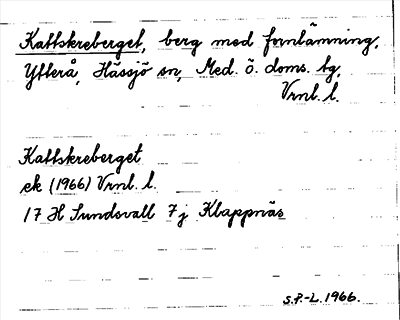 Kattskreberget, berg med fornlämning,
Ytterå, Hässjö sn, Med. ö. doms. tg,
Vrnl. l.
Kattskreberget
ek (1966) Vrnl. l.
17 H Sundsvall 7 j Klappnäs
S.P.-L. 1966.